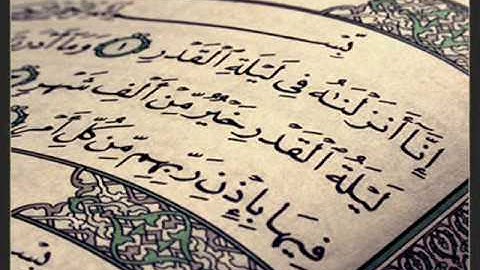 إِنَّا أَنزَلْنَٰهُ فِي لَيْلَةِ ٱلْقَدْرِ ١ وَمَا
لَيْلَةُ ٱلْقَدْرِ خَيْرٌ مِّنْ أَلْفِ شَهْرٍ
فِيهَا بِإِذْنِ رَبِّهِم مِّن كُلِّ أَمْرٍ